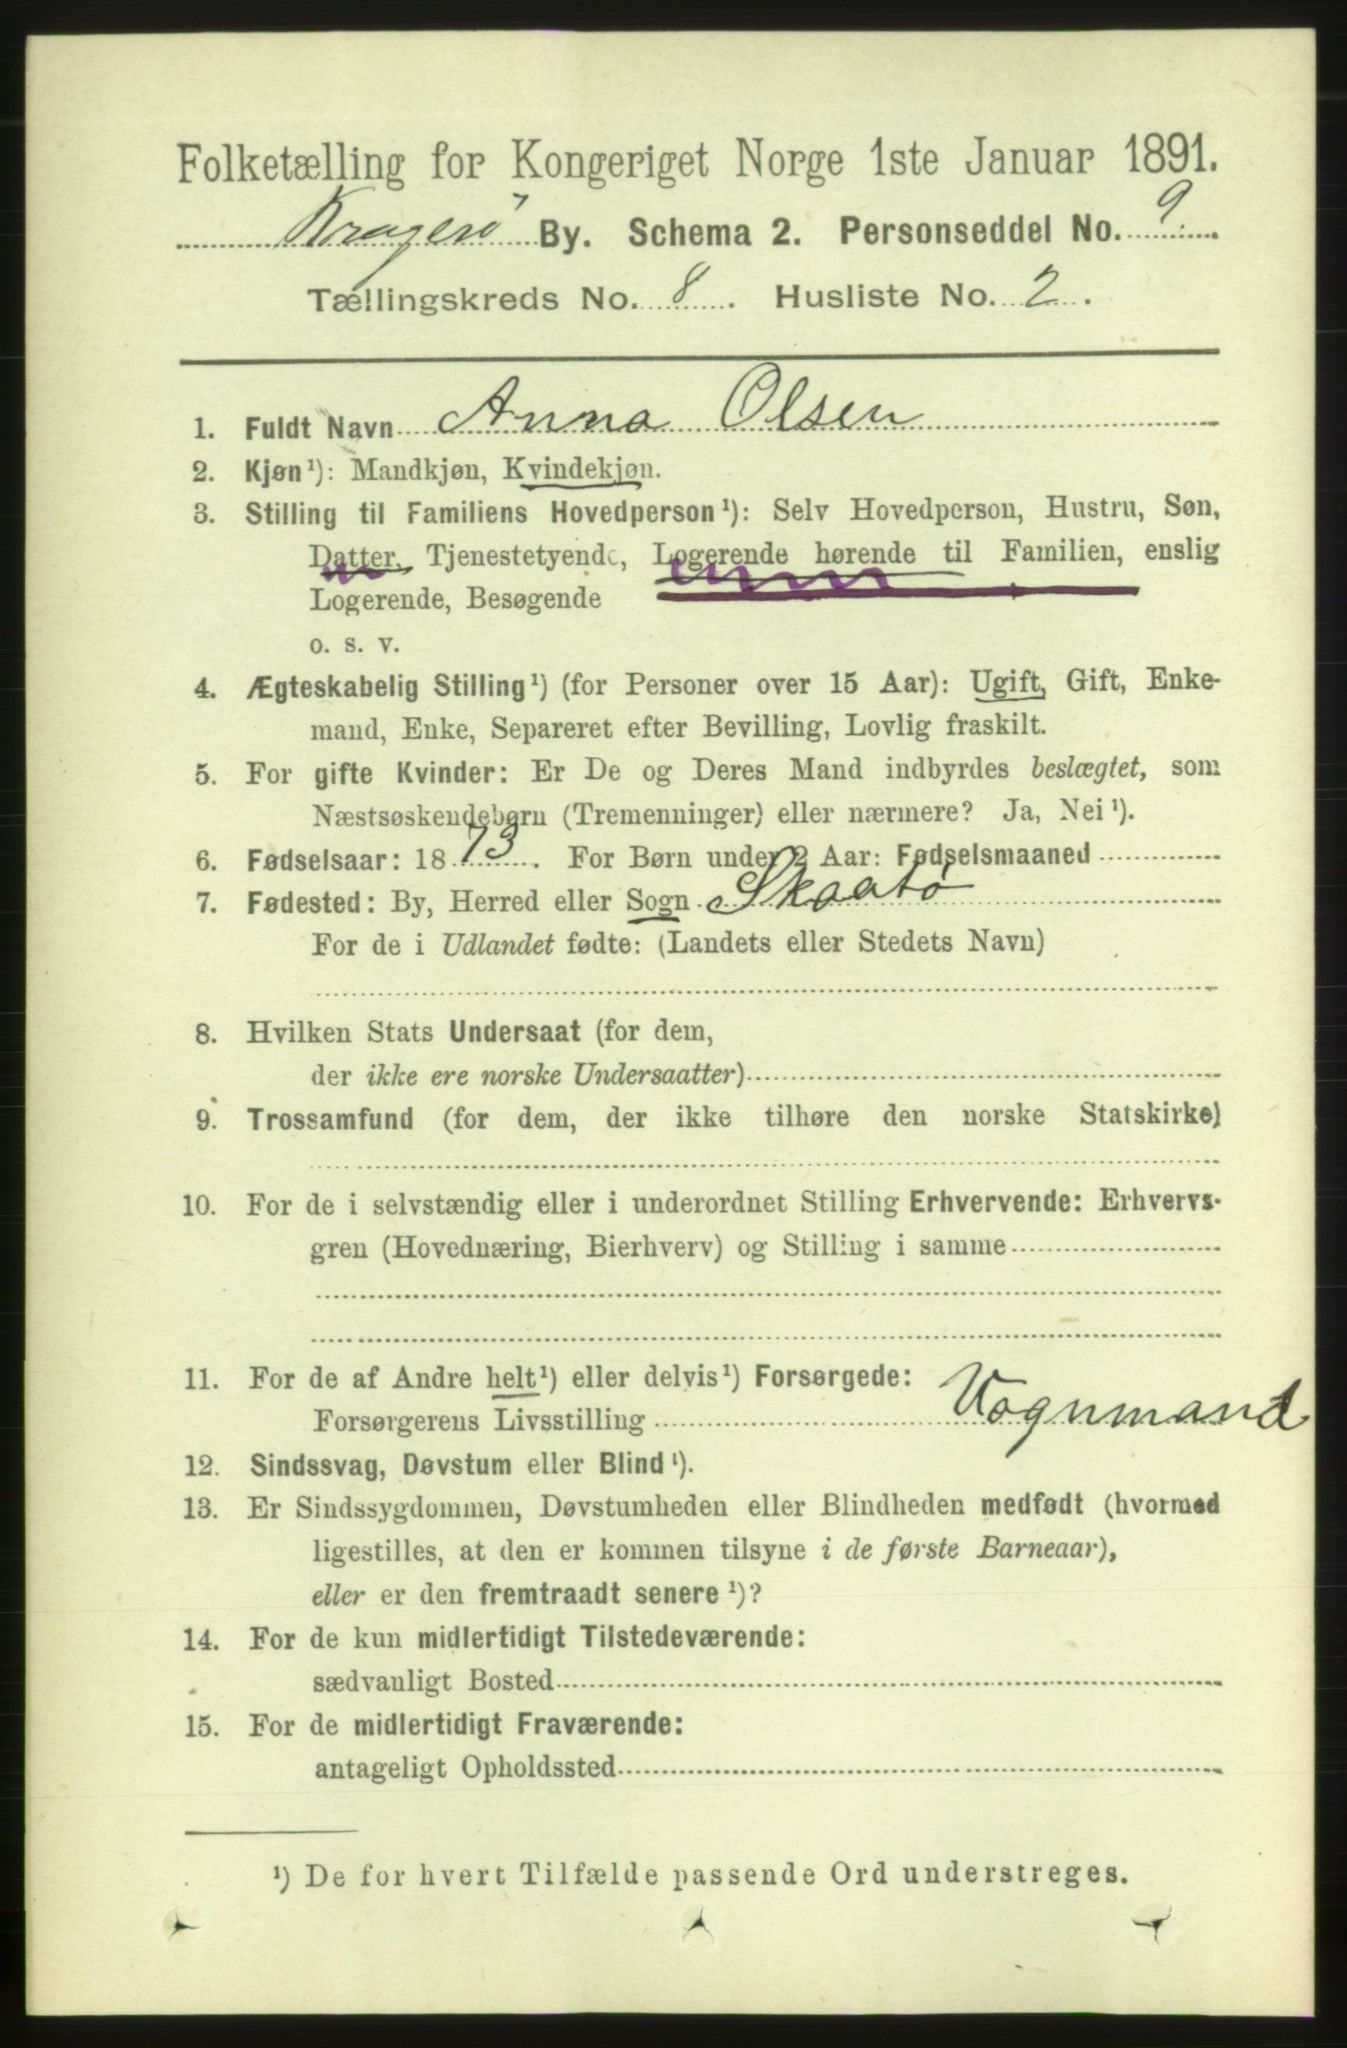 Folketælling for Kongeriget Norge 1ste Januar 1891.
Kragerø By. Schema 2. Personseddel No. 9.
Tællingskreds No. 8. Husliste No. 2.
1. Fuldt Navn Anna Olsen
2. Kjøn¹): Mandkjøn, Kvindekjøn.
3. Stilling til Familiens Hovedperson¹): Selv Hovedperson, Hustru, Søn,
Datter, Tjenestetyende, Logerende hørende til Familien, enslig
Logerende, Besøgende
o. s. v.
4. Ægteskabelig Stilling¹) (for Personer over 15 Aar): Ugift, Gift, Enke-
mand, Enke, Separeret efter Bevilling, Lovlig fraskilt.
5. For gifte Kvinder: Er De og Deres Mand indbyrdes beslægtet, som
Næstsøskendebørn (Tremenninger) eller nærmere? Ja, Nei¹).
6. Fødselsaar: 1873. For Børn under 2 Aar: Fødselsmaaned
7. Fødested: By, Herred eller Sogn Skaatø
For de i Udlandet fødte: (Landets eller Stedets Navn)
8. Hvilken Stats Undersaat (for dem,
der ikke ere norske Undersaatter)
9. Trossamfund (for dem, der ikke tilhøre den norske Statskirke)
10. For de i selvstændig eller i underordnet Stilling Erhvervende: Erhvervs-
gren (Hovednæring, Bierhverv) og Stilling i samme
11. For de af Andre helt¹) eller delvis¹) Forsørgede:
Forsørgerens Livsstilling Vognmand
12. Sindssvag, Døvstum eller Blind¹).
13. Er Sindssygdommen, Døvstumheden eller Blindheden medfødt (hvormed
ligestilles, at den er kommen tilsyne i de første Barneaar),
eller er den fremtraadt senere¹)?
14. For de kun midlertidigt Tilstedeværende:
sædvanligt Bosted
15. For de midlertidigt Fraværende:
antageligt Opholdssted
¹) De for hvert Tilfælde passende Ord understreges.